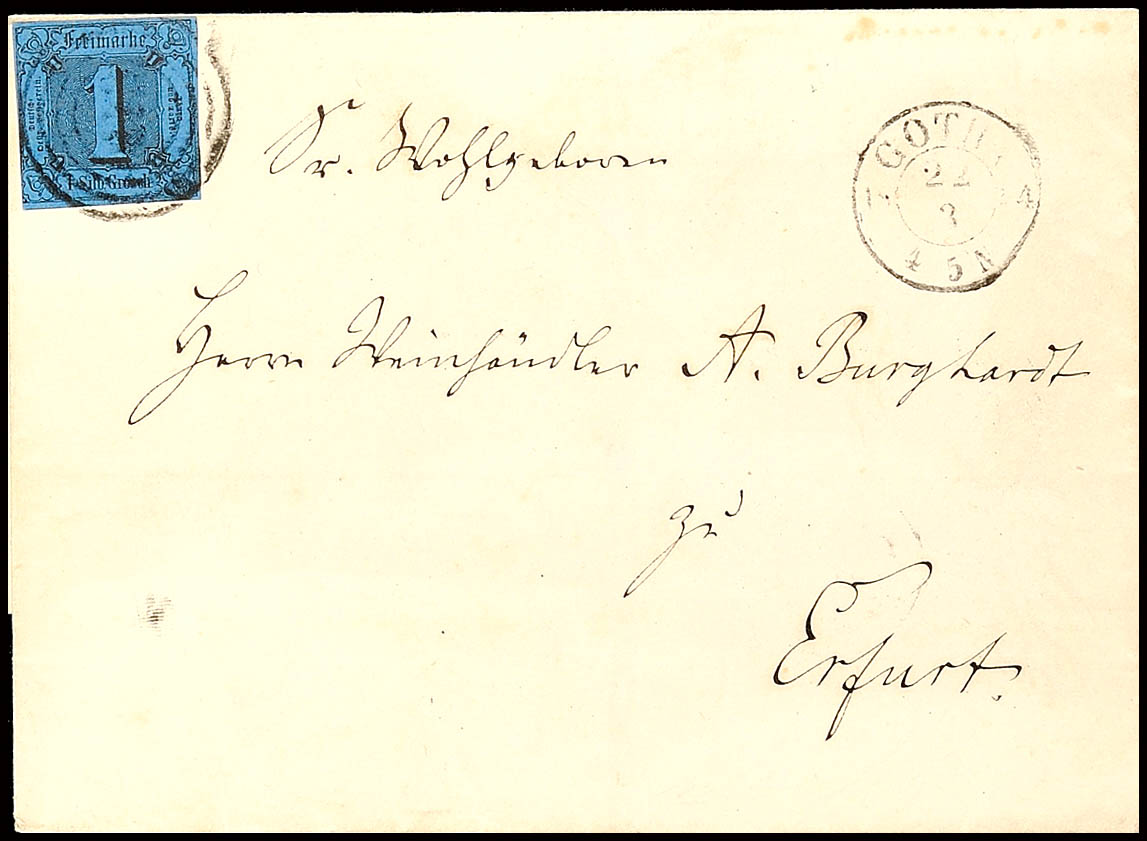 Freimarke
1
1 Silb. Grosch
GOTHA
22
3
4 5 N
Sr. Wohlgeboren
Herrn Weinhändler A. Burghardt
zu
Erfurt.